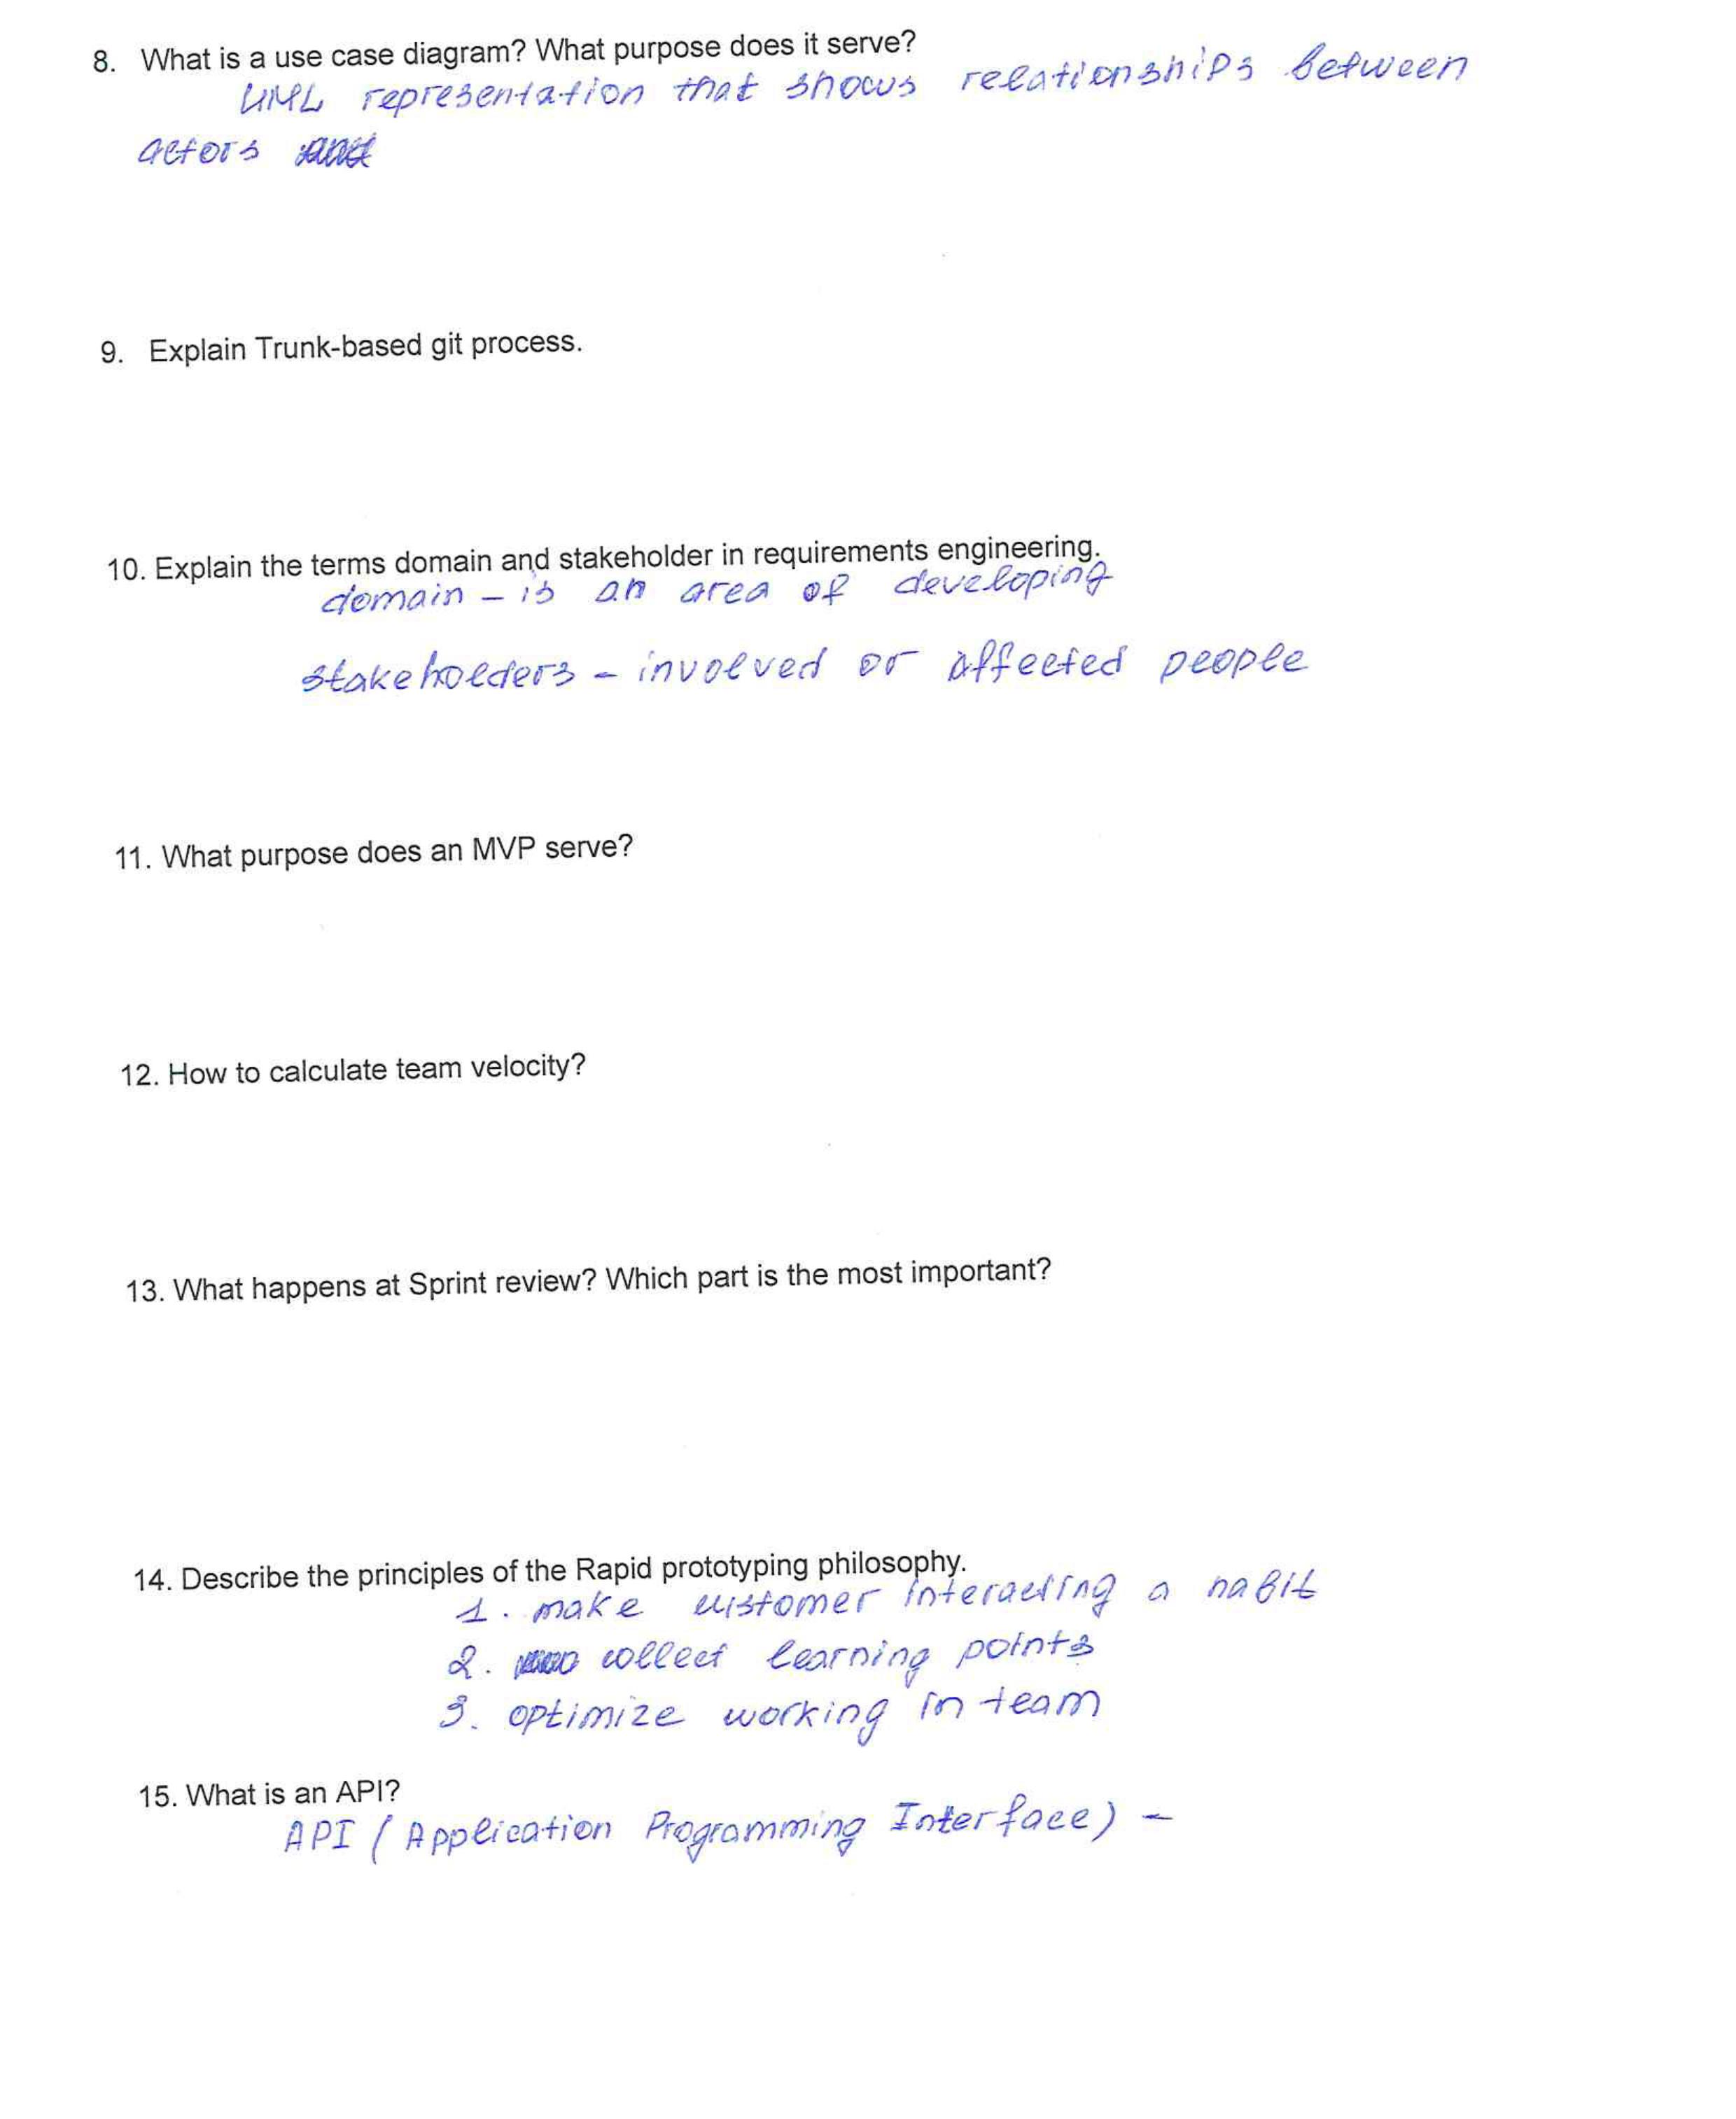 8. What is a use case diagram? What purpose does it serve?
UML representation that shows relationships between
actors
9. Explain Trunk-based git process.
10. Explain the terms domain and stakeholder in requirements engineering.
domain – is an area of developing
stakeholders – involved or affected people
11. What purpose does an MVP serve?
12. How to calculate team velocity?
13. What happens at Sprint review? Which part is the most important?
14. Describe the principles of the Rapid prototyping philosophy.
1. make customer interacting a habit
2. collect learning points
3. optimize working in team
15. What is an API?
API (Application Programming Interface) –